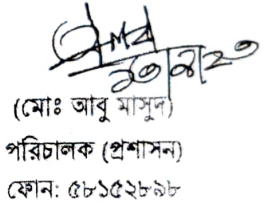 (মোঃ আবু মাসুদ)
পরিচালক (প্রশাসন)
ফোন: ৫৮১৫২৮৯৮